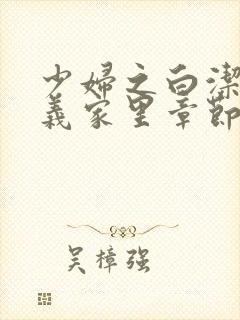 少婦之白潔
義家里章節
吴樟强